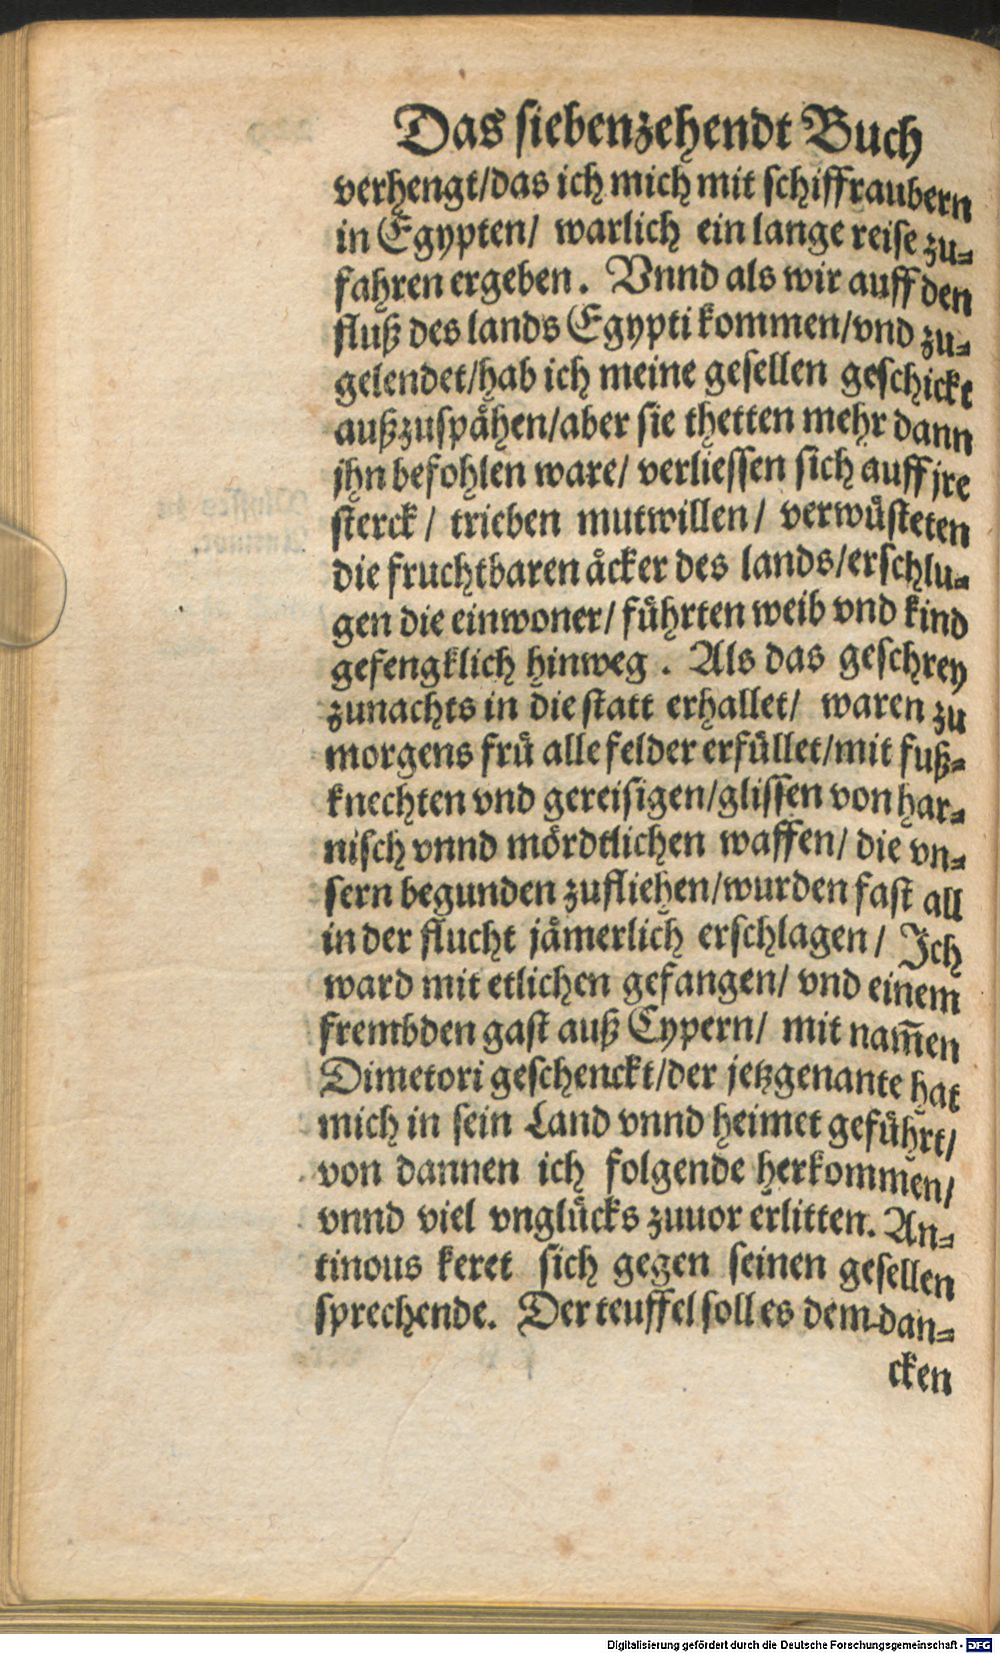 Das siebenzehendt Buch
verhengt/das ich mich mit schiffraubern
in Egypten/ warlich ein lange reise zu⸗
fahren ergeben. Vnnd als wir auff den
fluß des lands Egypti kommen/vnd zu⸗
gelendet/hab ich meine gesellen geschickt
außzuspåhen/aber sie thetten mehr dann
jhn befohlen ware/ verliessen sich auff jre
sterck/ trieben mutwillen/ verwůsteten
die fruchtbaren åcker des lands/erschlu⸗
gen die einwoner/ fůhrten weib vnd kind
gefengklich hinweg. Als das geschrey
zunachts in die statt erhallet/ waren zu
morgens frů alle felder erfůllet/mit fuß⸗
knechten vnd gereisigen/glissen von har⸗
nisch vnnd mördtlichen waffen/ die vn⸗
sern begunden zufliehen/wurden fast all
in der flucht jåmerlich erschlagen/ Ich
ward mit etlichen gefangen/ vnd einem
frembden gast auß Cypern/ mit nam̅en
Dimetori geschenckt/der jetzgenante hat
mich in sein Land vnnd heimet gefůhrt/
von dannen ich folgende herkommen/
vnnd viel vnglůcks zuuor erlitten. An⸗
tinous keret sich gegen seinen gesellen
sprechende. Der teuffel soll es dem dan⸗
cken
Digitalisierung gefördert durch die Deutsche Forschungsgemeinschaft - DFG